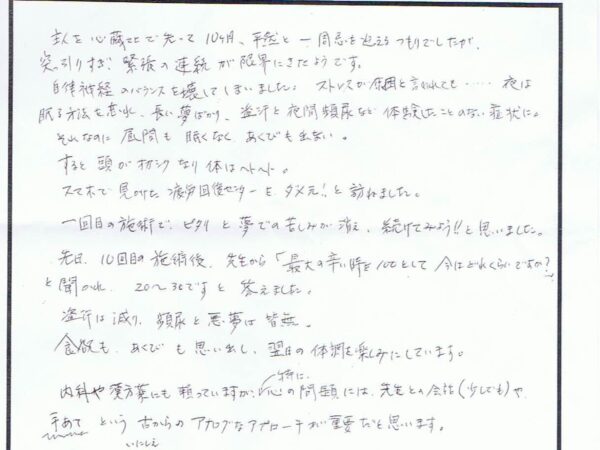 主人を心臓死で失って10ヶ月、平然と一周忌を迎えるつもりでしたが、
突っ引りすぎ?緊張の連続が限界にきたようです。
自律神経のバランスを壊してしまいました。ストレスが原因と言われても……夜は
眠る方法を忘れ、長い夢ばかり、盗汗と夜間頻尿など体験したことのない症状に。
それなのに昼間も眠くなく、あくびも出ない。
すると頭がオカシクなり体はヘトヘト。
スマホで見つけた疲労回復センターを、ダメ元!!と訪ねました。
一回目の施術で、ピタリと夢での苦しみが消え、続けてみよう!!と思いました。
先日、10回目の施術後、先生から「最大の辛い時を100として今はどれくらいですか?
と聞かれ、20〜30ですと答えました。
盗汗は減り、頻尿と悪夢は皆無。
食欲も、あくびも思い出し、翌日の体調を楽しみにしています。
内科や漢方薬にも頼っていますが、特に心の問題には、先生との会話(少しでも)や、
手あてという古からのアナログなアプローチが重要だと思います。
いにしえ